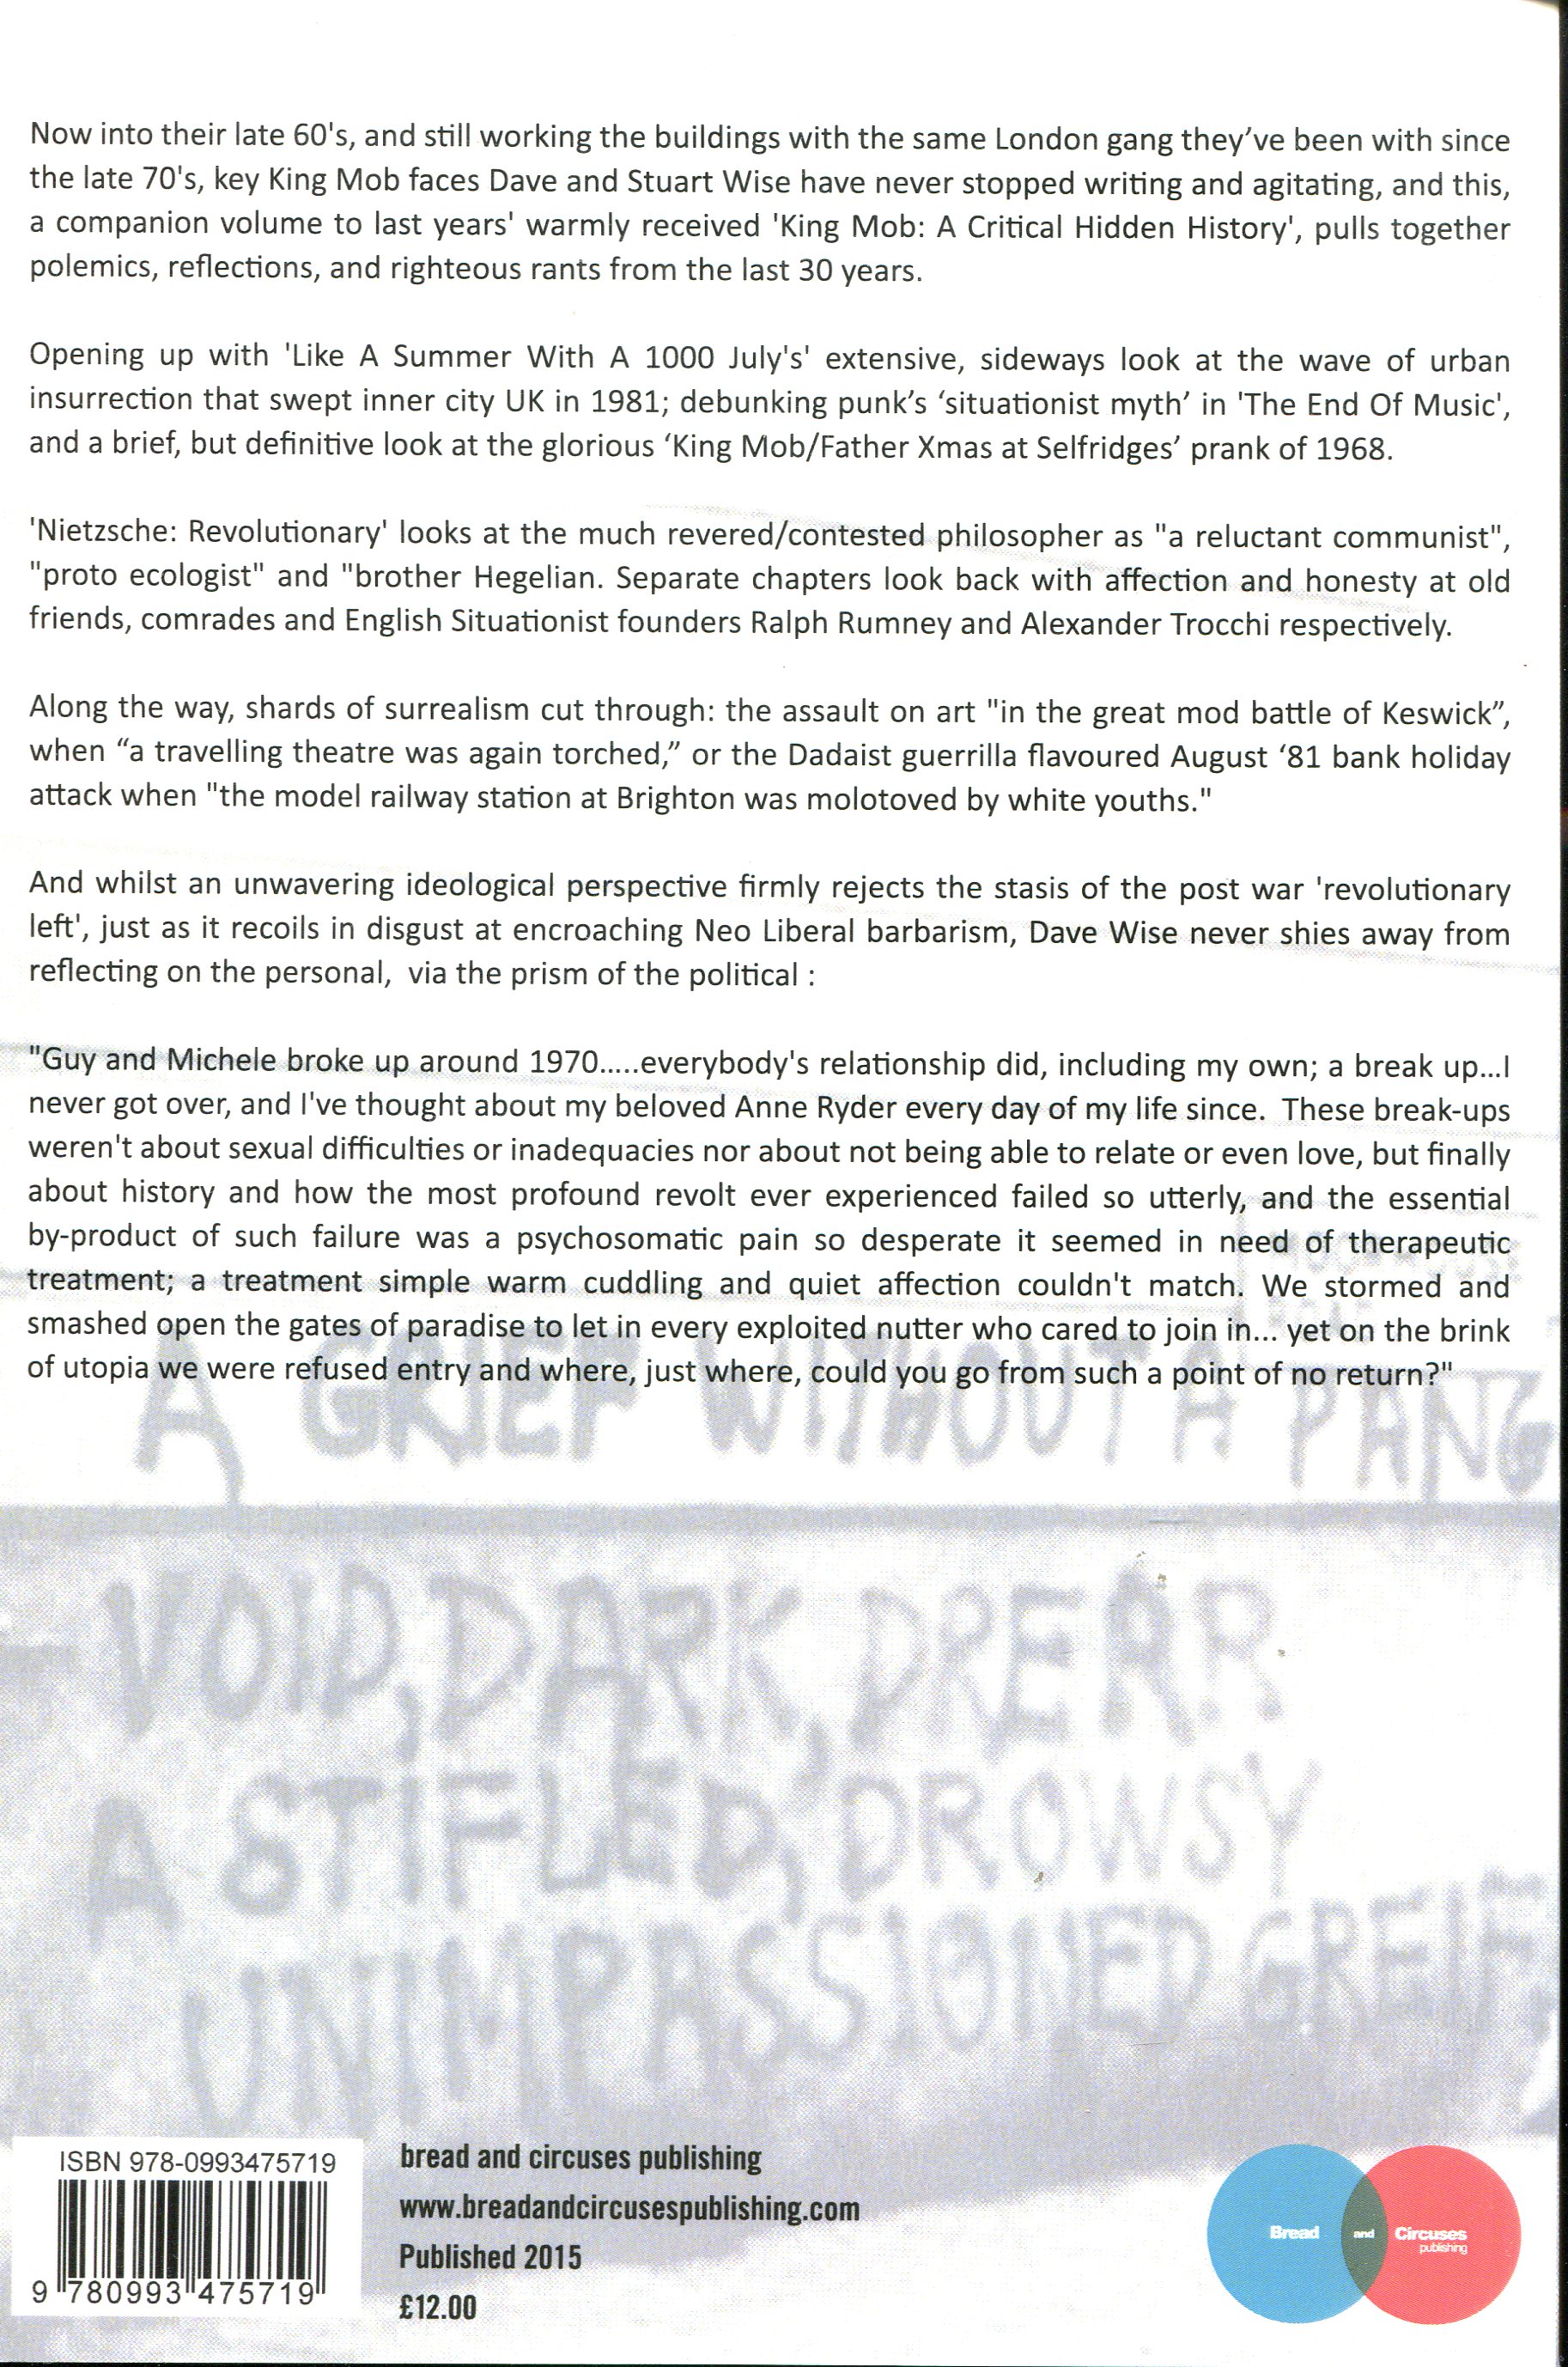 Now into their late 60's, and still working the buildings with the same London gang they’ve been with since
the late 70's, key King Mob faces Dave and Stuart Wise have never stopped writing and agitating, and this,
a companion volume to last years' warmly received 'King Mob: A Critical Hidden History', pulls together
polemics, reflections, and righteous rants from the last 30 years.
Opening up with 'Like A Summer With A 1000 July's' extensive, sideways look at the wave of urban
insurrection that swept inner city UK in 1981; debunking punk’s ‘situationist myth’ in 'The End Of Music',
and a brief, but definitive look at the glorious ‘King Mob/Father Xmas at Selfridges’ prank of 1968.
'Nietzsche: Revolutionary' looks at the much revered/contested philosopher as "a reluctant communist",
"proto ecologist" and "brother Hegelian. Separate chapters look back with affection and honesty at old
friends, comrades and English Situationist founders Ralph Rumney and Alexander Trocchi respectively.
Along the way, shards of surrealism cut through: the assault on art "in the great mod battle of Keswick”,
when “a travelling theatre was again torched,” or the Dadaist guerrilla flavoured August ‘81 bank holiday
attack when "the model railway station at Brighton was molotoved by white youths."
And whilst an unwavering ideological perspective firmly rejects the stasis of the post war 'revolutionary
left', just as it recoils in disgust at encroaching Neo Liberal barbarism, Dave Wise never shies away from
reflecting on the personal,  via the prism of the political :
"Guy and Michele broke up around 1970.....everybody's relationship did, including my own; a break up...I
never got over, and I've thought about my beloved Anne Ryder every day of my life since.  These break-ups
weren't about sexual difficulties or inadequacies nor about not being able to relate or even love, but finally
about history and how the most profound revolt ever experienced failed so utterly, and the essential
by-product of such failure was a psychosomatic pain so desperate it seemed in need of therapeutic
treatment; a treatment simple warm cuddling and quiet affection couldn't match. We stormed and
smashed open the gates of paradise to let in every exploited nutter who cared to join in... yet on the brink
of utopia we were refused entry and where, just where, could you go from such a point of no return?"
A GRIEF WITHOUT A PANG
VOID, DARK, DREAR.
A STIFLED, DROWSY
UNIMPASSIONED GREIF
ISBN 978-0993475719
9 780993 475719
bread and circuses publishing
www.breadandcircusespublishing.com
Published 2015
£12.00
Bread and Circuses
publishing